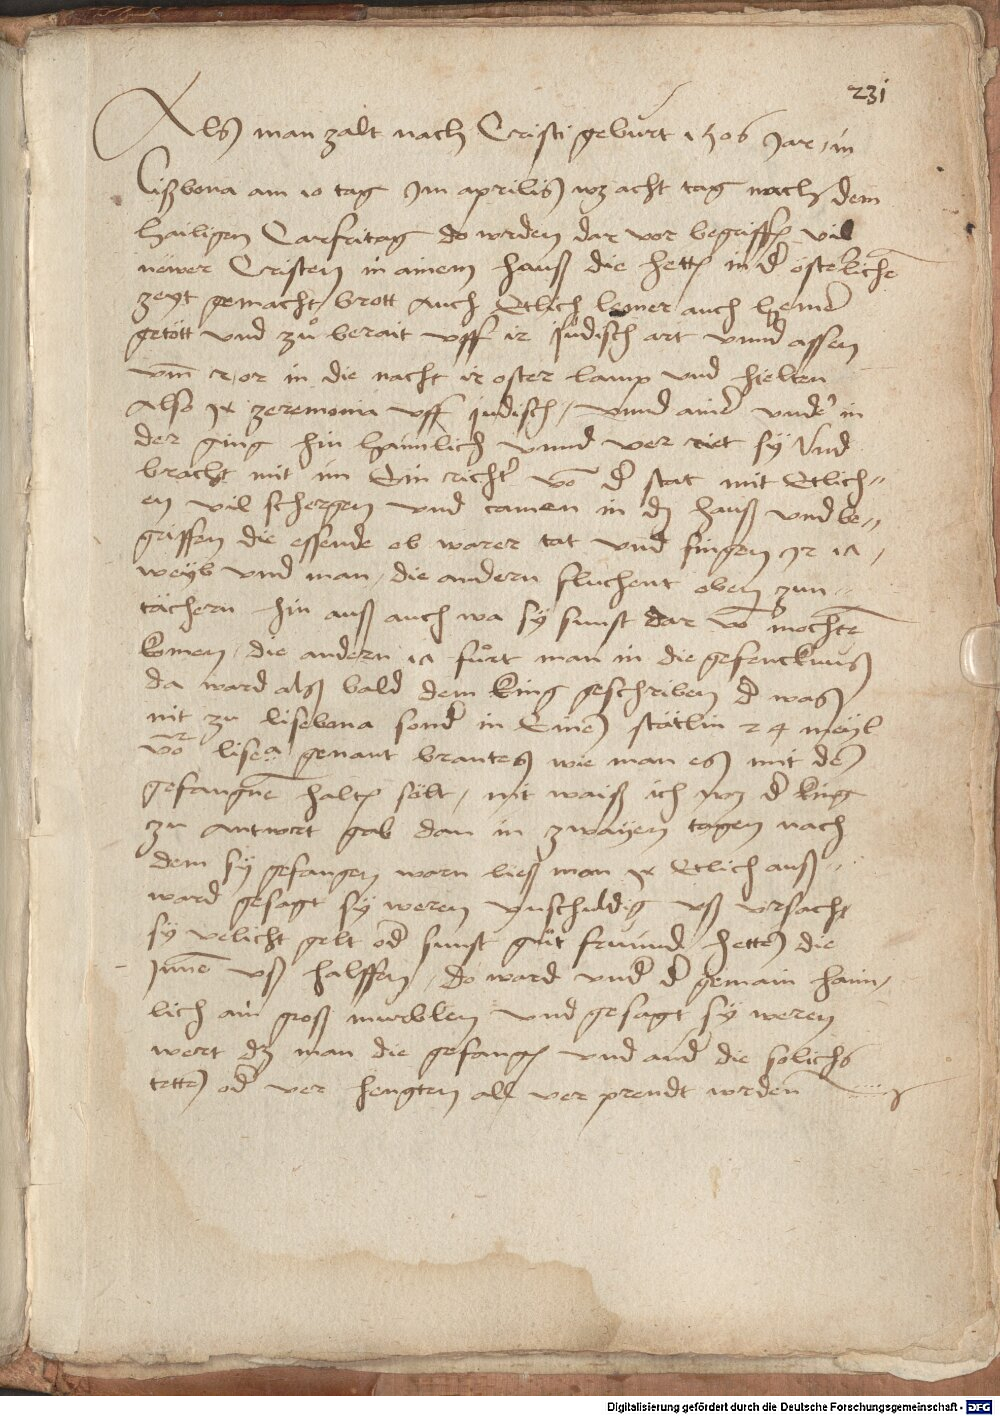 231
Als man zalt nach Cristi geburt 1506 Jar, in
Lißbona am 10 tag Im aprilis wz acht tag nach dem
hailigen Carfritag do wrden dar vor begriffen vil
nüwer Cristen in ainem hauß die hetten in der österlichē
zeyt gemacht brott Auch Etlich lemer auch hennē
getött vnd zů berait vff ir Jüdisch art vnnd assen
vm̄ in die nacht ir oster lamp vnd hielten
Also ir zeremonia vff judisch, vnnd ainer vnder in
der ging hin haimlich vnnd ver riet sy Vnd
bracht mit im Ein richter vō der stat mit Etlich=
en vil schergen vnd camen in dz hauß vnd be=
griffen die essende ob warer tat vnd fingen ir 17,
weyb vnd man, die andern fluchent oben zun=
tächern hin auß auch wa sy sunst dar vō mochtē
komen, die andern 17 fůrt man in die gefencknuß
da ward alß bald dem king geschriben der waß
nit zu lisebona sonder in Einem stätlin 24 meyl
vor lisea genant brantes wie man es mit den
gefangnē halten sölt, nit waiß ich wz der king
zu Antwort gab dan in zwayen tagen nach
dem sy gefangen warn ließ man ir Etlich auß=
ward gesagt sy weren vnschuldig vß vrsach
sy velicht gelt oder sunst gůt freünde hetten die
Innē vß halffen, do ward vnder der gemain haim,
lich ain groß murblen vnd gesagt sy weren
wert dz man die gefangen vnd ander die solichs
tetten oder ver hengten all ver prendt wrden
Digitalisierung gefördert durch die Deutsche Forschungsgemeinschaft - DFG